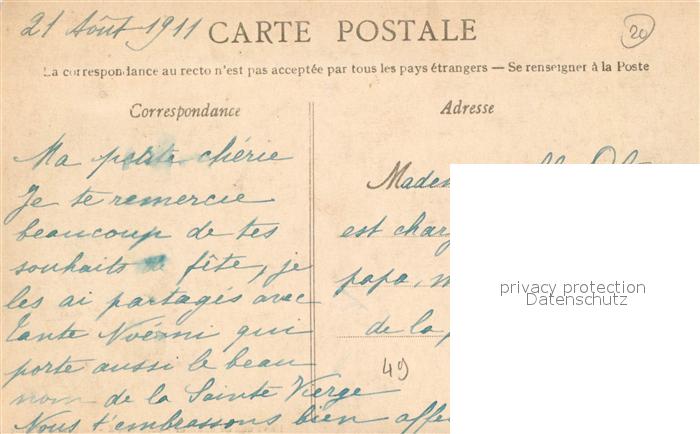 21 Août 1911 CARTE POSTALE 20
La correspondance au recto n'est pas acceptée par tous les pays étrangers — Se renseigner à la Poste
Correspondance
Ma petite chérie
Je te remercie
beaucoup de tes
souhaits de fête, je
les ai partagés avec
tante Noémi qui
porte aussi le beau
nom de la Sainte Vierge
Nous t'embrassons bien
Adresse
est
papa,
de la
49
privacy protection
Datenschutz